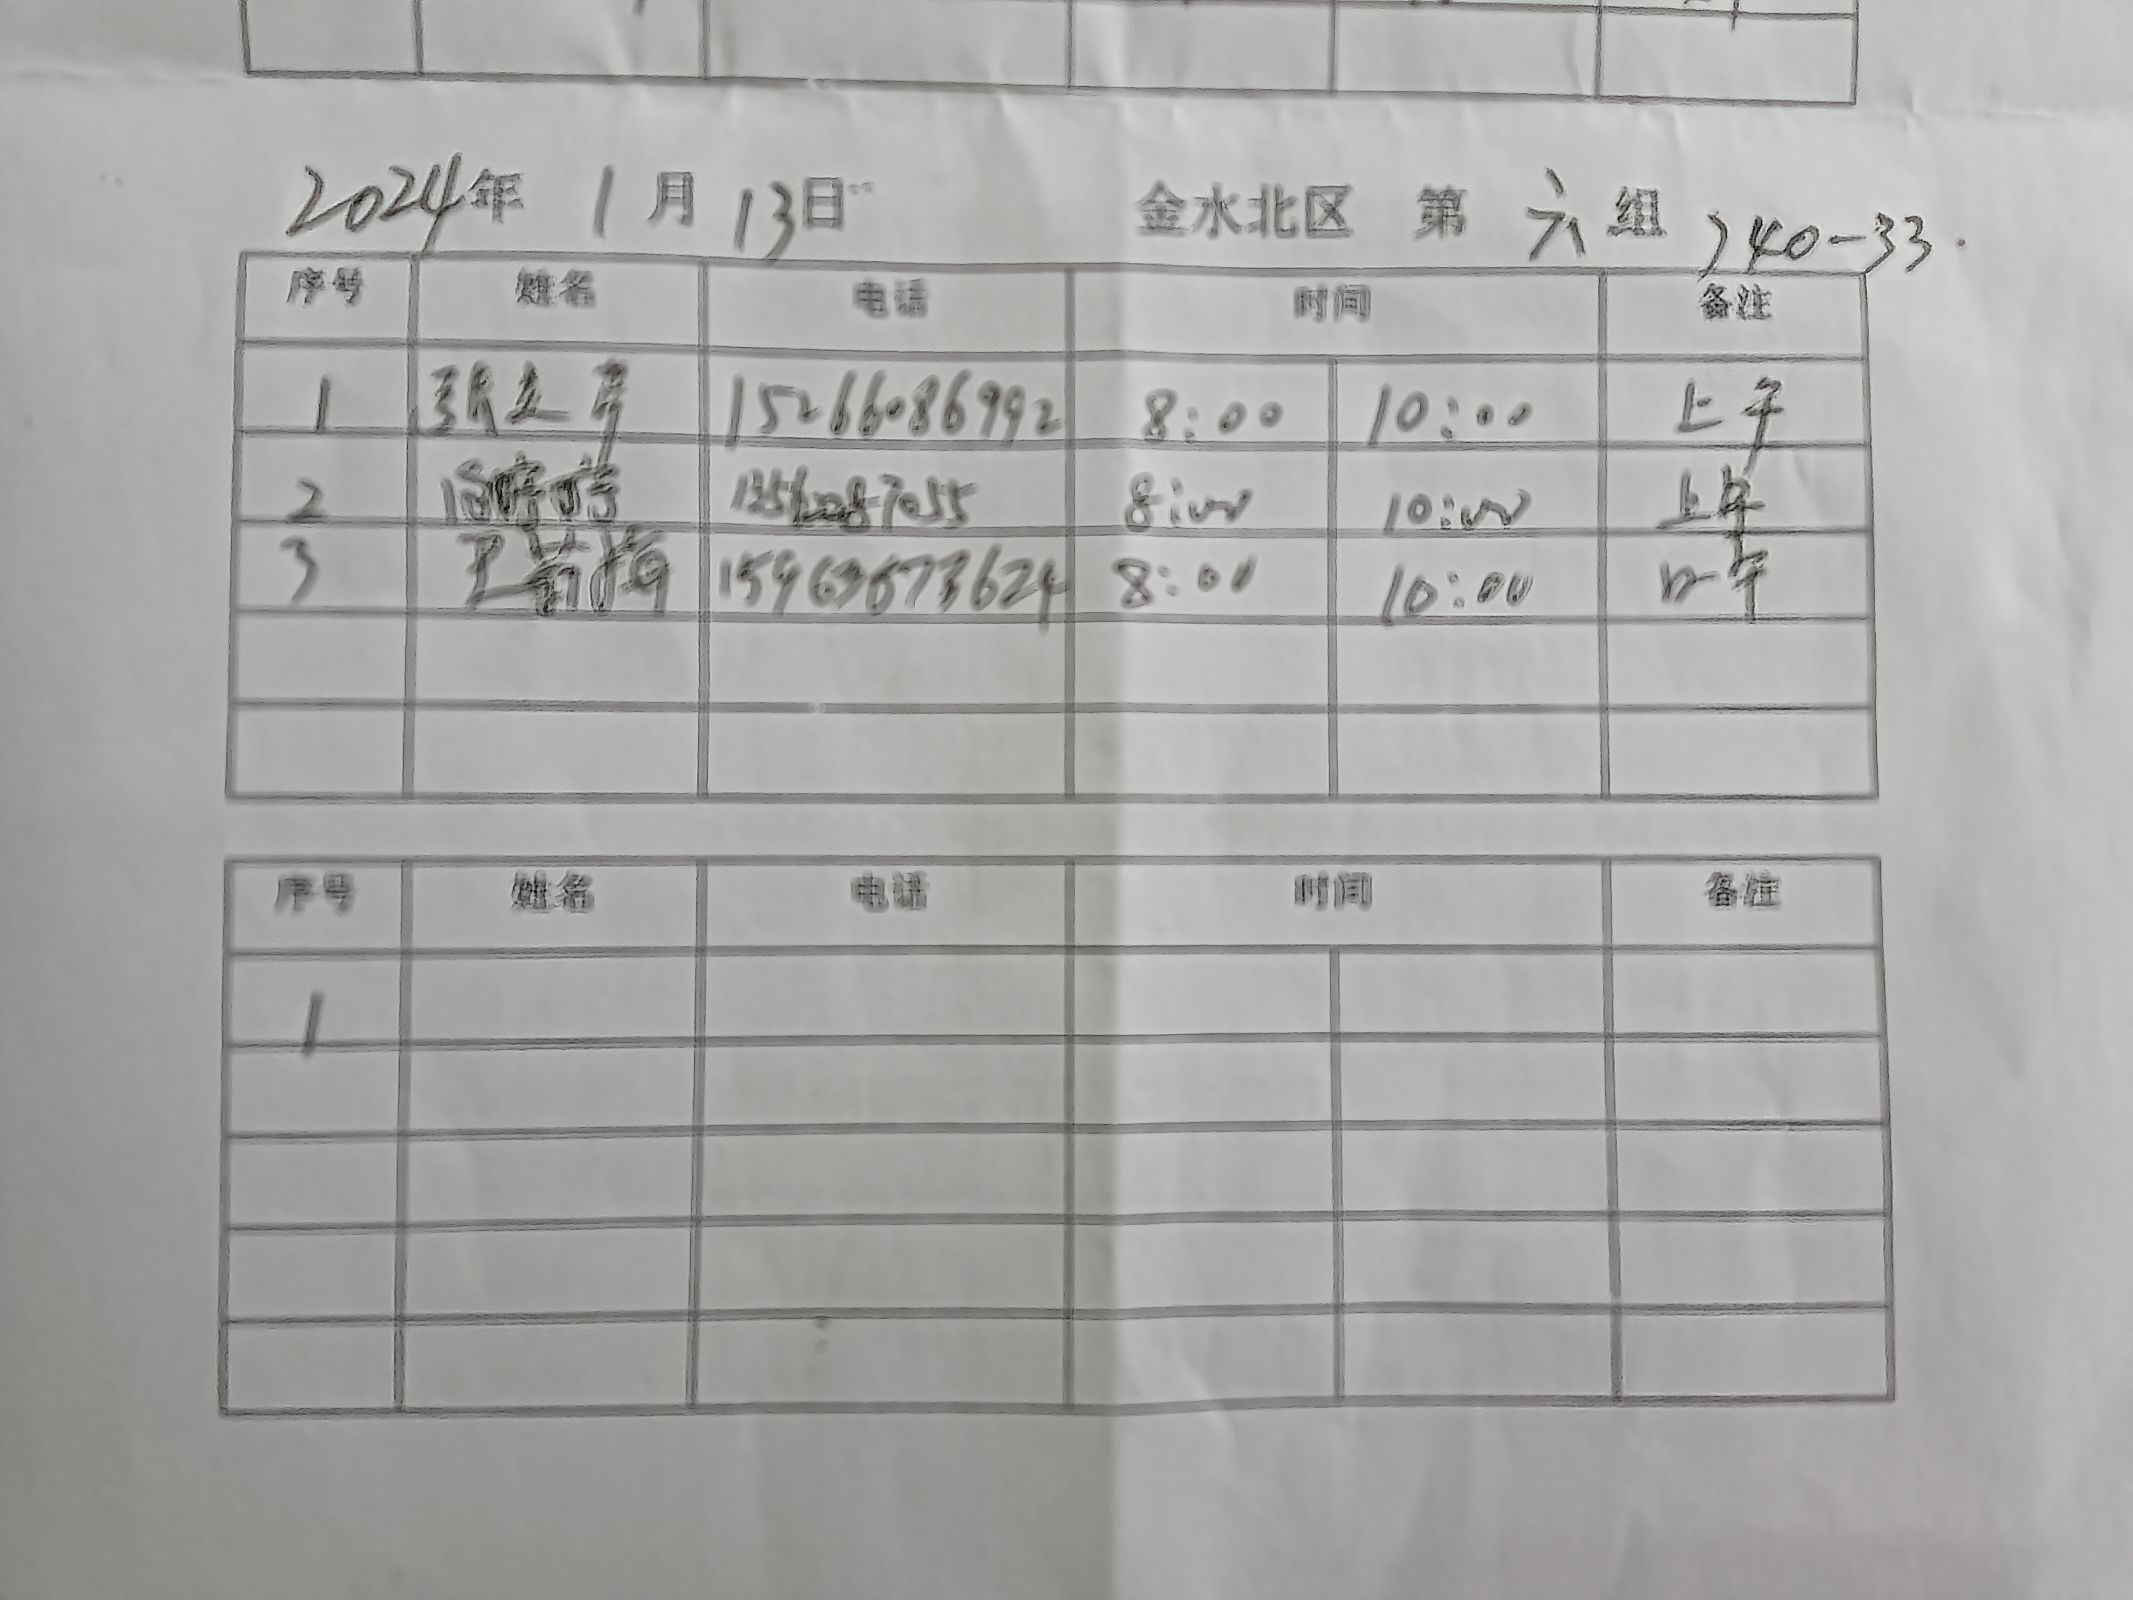 2024年 1月 13日 金水北区 第 六 组 240-33.
序号 姓名 电话 时间 备注
1 张 15266086992 8:00 10:00 上午
2 8:00 10:00 上午
3 王 15963673624 8:00 10:00 上午
序号 姓名 电话 时间 备注
1